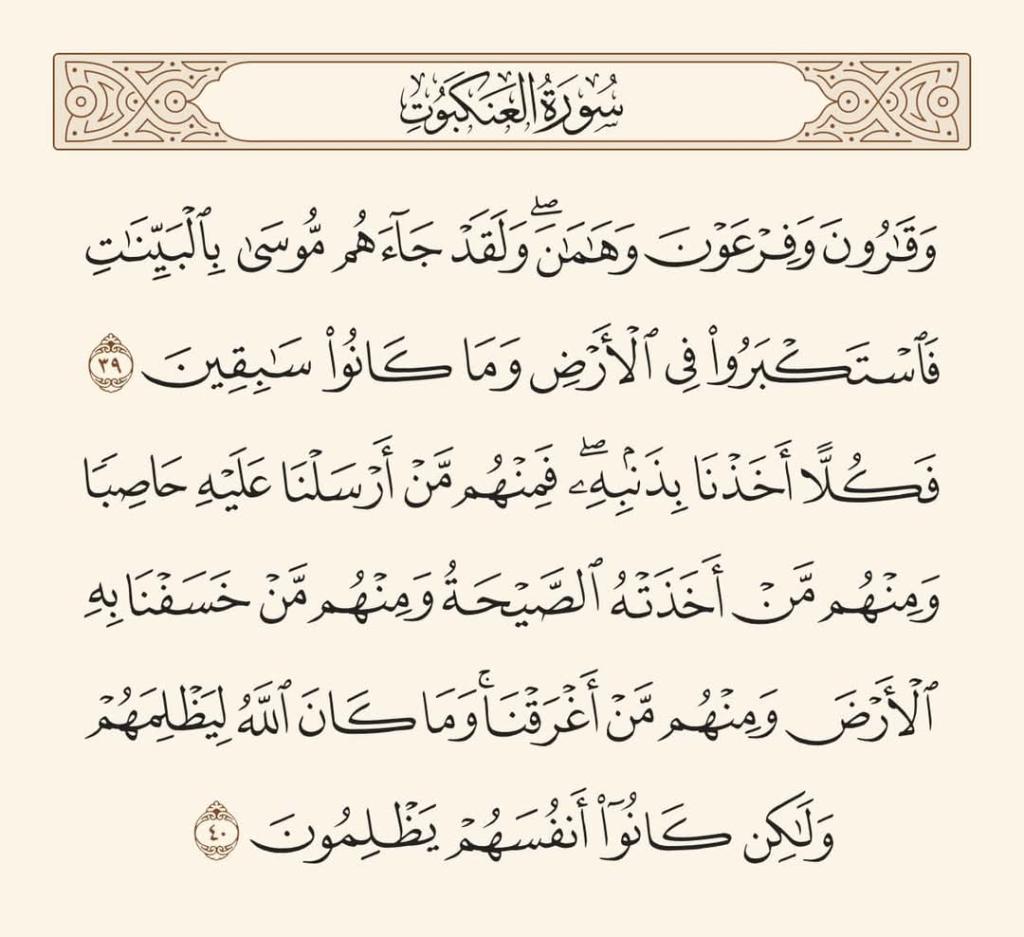 سُورَةُ العَنكَبُوتِ
وَقَٰرُونَ وَفِرْعَوْنَ وَهَٰمَٰنَۖ وَلَقَدْ جَآءَهُم مُّوسَىٰ بِٱلْبَيِّنَٰتِ
فَٱسْتَكْبَرُوا۟ فِى ٱلْأَرْضِ وَمَا كَانُوا۟ سَٰبِقِينَ ٣٩
فَكُلًّا أَخَذْنَا بِذَنۢبِهِۦۖ فَمِنْهُم مَّنْ أَرْسَلْنَا عَلَيْهِ حَاصِبًا
وَمِنْهُم مَّنْ أَخَذَتْهُ ٱلصَّيْحَةُ وَمِنْهُم مَّنْ خَسَفْنَا بِهِ
ٱلْأَرْضَ وَمِنْهُم مَّنْ أَغْرَقْنَاۚ وَمَا كَانَ ٱللَّهُ لِيَظْلِمَهُمْ
وَلَٰكِن كَانُوٓا۟ أَنفُسَهُمْ يَظْلِمُونَ ٤٠